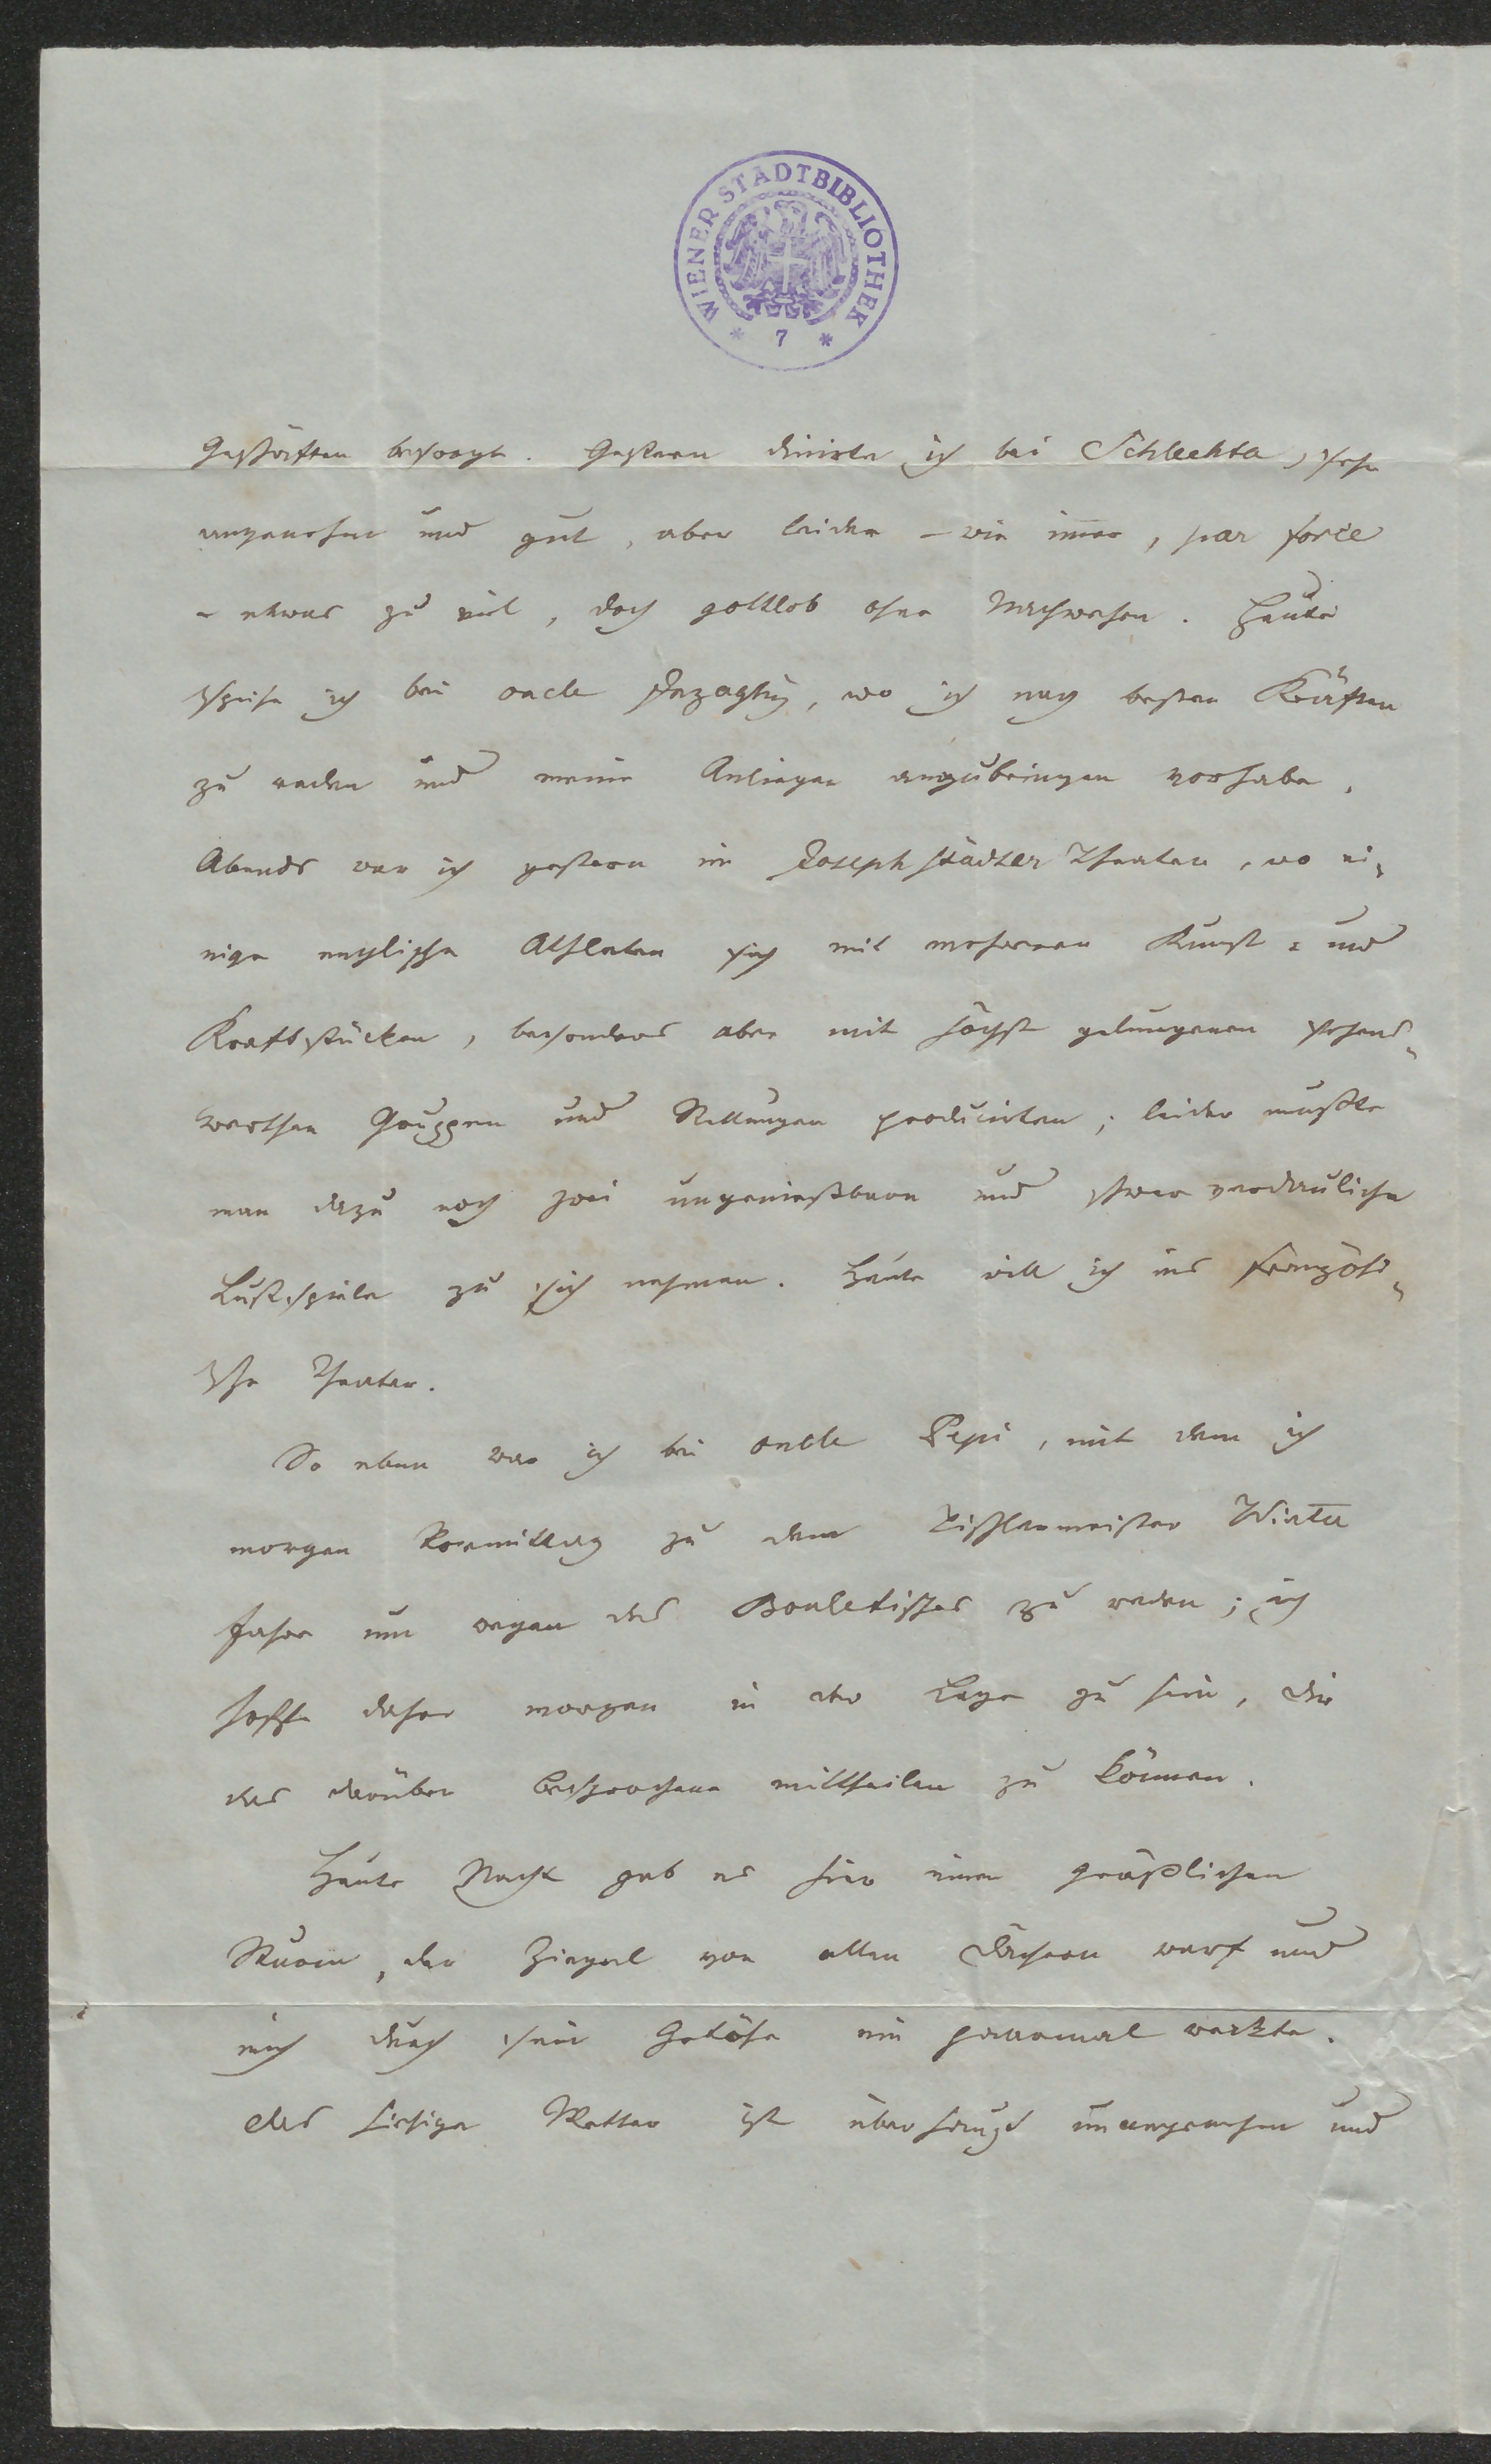 WIENER STADTBIBLIOTHEK
* 7 *
Geschäften besorgt. Gestern dinirte ich bei Schlechta, sehr
angenehm und gut, aber leider – wie immer, par force
– etwas zu viel, doch gottlob ohne Nachwehen. Heute
speise ich bei oncle, wo ich nach besten Kräften
zu reden und meine Anliegen anzubringen vorhabe.
Abends war ich gestern im Josephstädter Theater, wo ei-
nige englische Athleten sich mit mehreren Kunst- und
Kraftstücken, besonders aber mit höchst gelungenen sehens-
werthen Gruppen und Stellungen producirten; leider mußte
man dazu noch zwei ungenießbare und schwer verdauliche
Lustspiele zu sich nehmen. Heute will ich ins französi-
sche Theater.
So eben war ich bei oncle Pepi, mit dem ich
morgen Vormittag zu dem Tischlermeister
fahre um wegen des Bouletisches zu reden; ich
hoffe daher morgen in der Lage zu sein, dir
das darüber Besprochene mittheilen zu können.
Heute Nacht gab es hier einen gräßlichen
Sturm, der Ziegel von allen Dächern warf und
mich durch sein Getöse ein paarmal weckte.
das hiesige Wetter ist überhaupt unangenehm und